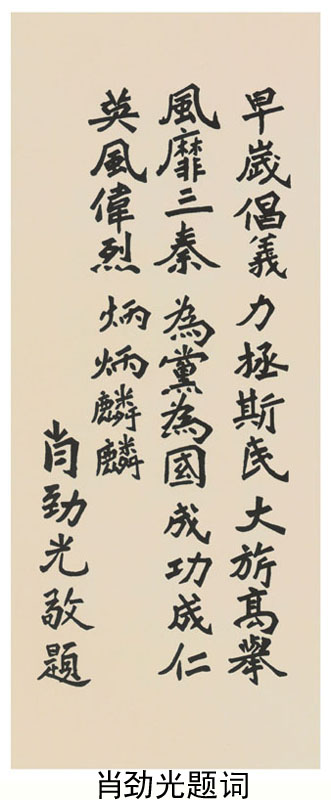 早歲倡義力拯斯民大旂高舉
風靡三秦為黨為國成功成仁
英風偉烈炳炳麟麟
肖劲光敬題
肖劲光题词